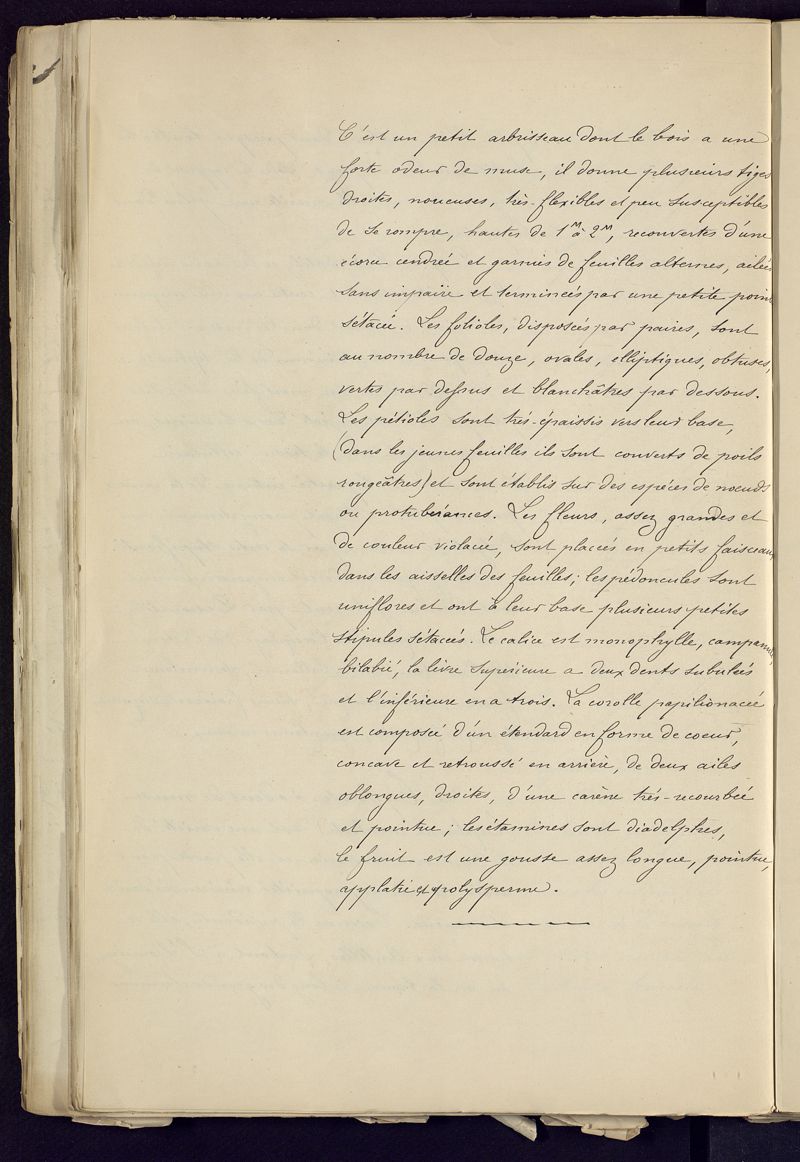 C'est un petit arbrisseau dont le bois a une
forte odeur de musc, il donne plusieurs tiges
droites, noueuses, très-flexibles et peu susceptibles
de se rompre, hautes de 1ᴹ à 2ᴹ, recouvertes d'une
écorce cendrée et garnies de feuilles alternes, ailées
sans impaire et terminées par une petite pointe
sétacée. Les folioles, disposées par paires, sont
au nombre de douze, ovales, elliptiques, obtuses,
vertes par dessus et blanchâtres par dessous.
Les pétioles sont très-épaissis vers leur base,
(dans les jeunes feuilles ils sont couverts de poils
rougeâtres) et sont établis sur des espèces de noeuds
ou protubérances. Les fleurs, assez grandes et
de couleur violacée, sont placées en petits faisceaux
dans les aisselles des feuilles; les pédoncules sont
uniflores et ont à leur base plusieurs petites
stipules sétacées. Le calice est monophylle,
bilabié, la lèvre supérieure a deux dents subulées
et l'inférieure en a trois. La corolle papilionacée
est composée d'un étendard en forme de coeur,
concave et retroussé en arrière, de deux ailes
oblongues, droites, d'une carène très-recourbée
et pointue; les étamines sont diadelphes,
le fruit est une gousse assez longue, pointue,
applatie et polysperme.